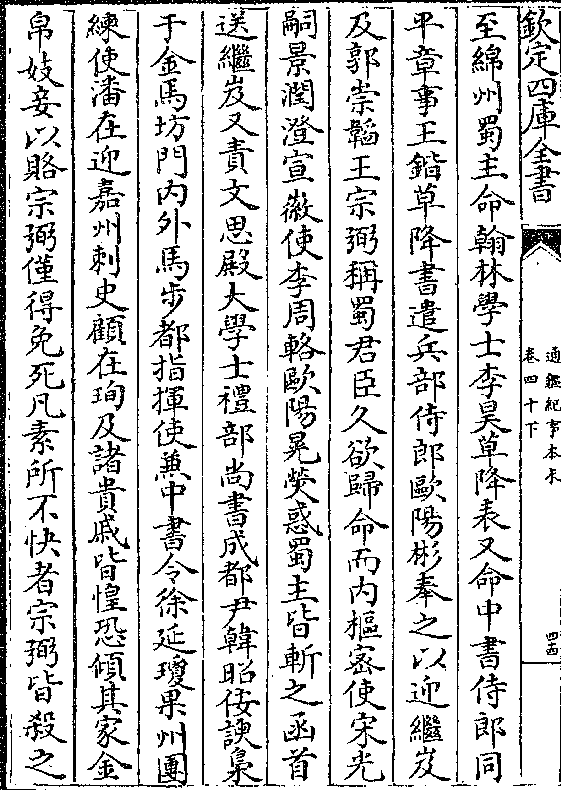 欽定四庫全書
通鑑紀事本末
卷四十下
四四
至綿州蜀主命翰林學士李昊草降表又命中書侍郎同
平章事王鍇草降書遣兵部侍郎歐陽彬奉之以迎繼岌
及郭崇韜王宗弼稱蜀君臣久欲歸命而内樞密使宋光
嗣景潤澄宣徽使李周輅歐陽晃熒惑蜀主皆斬之函首
送繼岌又責文思殿大學士禮部尚書成都尹韓昭佞諛梟
于金馬坊門内外馬步都指揮使兼中書令徐延瓊果州團
練使潘在迎嘉州刺史顧在珣及諸貴戚皆惶恐傾其家金
帛妓妾以賂宗弼僅得免死凡素所不快者宗弼皆殺之